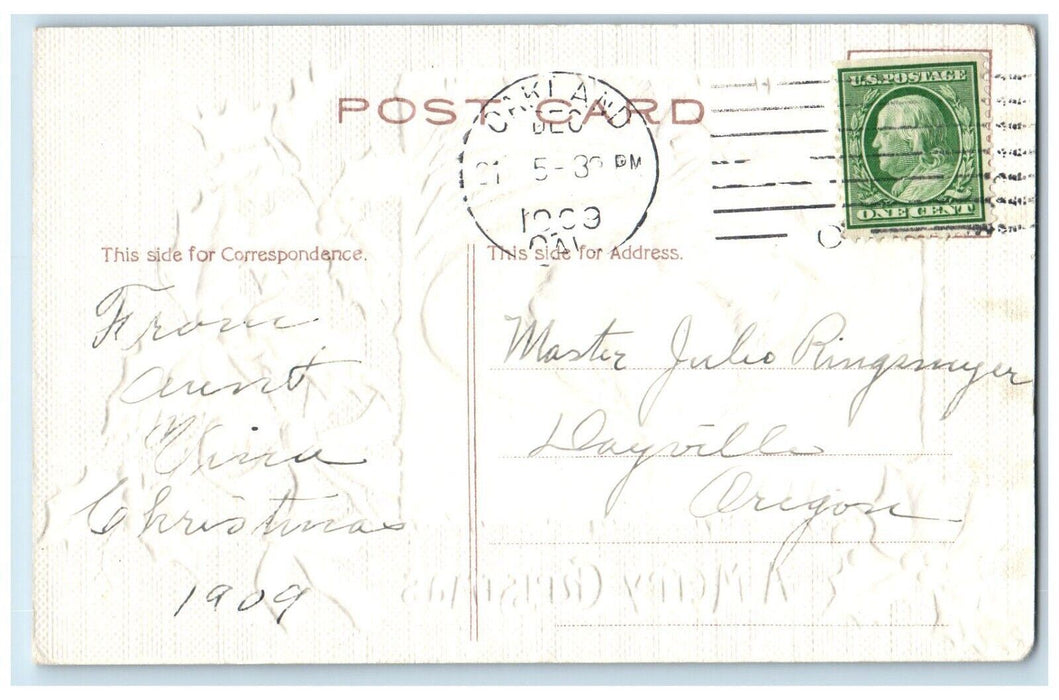 POST CARD
OAKLAND
DEC
21 5-30 PM
1909
CAL
U.S. POSTAGE
ONE CENT
This side for Correspondence.
This side for Address.
From
Aunt
Christmas
1909
Master Julio Ringsmeyer
Dayville
Oregon
A Merry Christmas